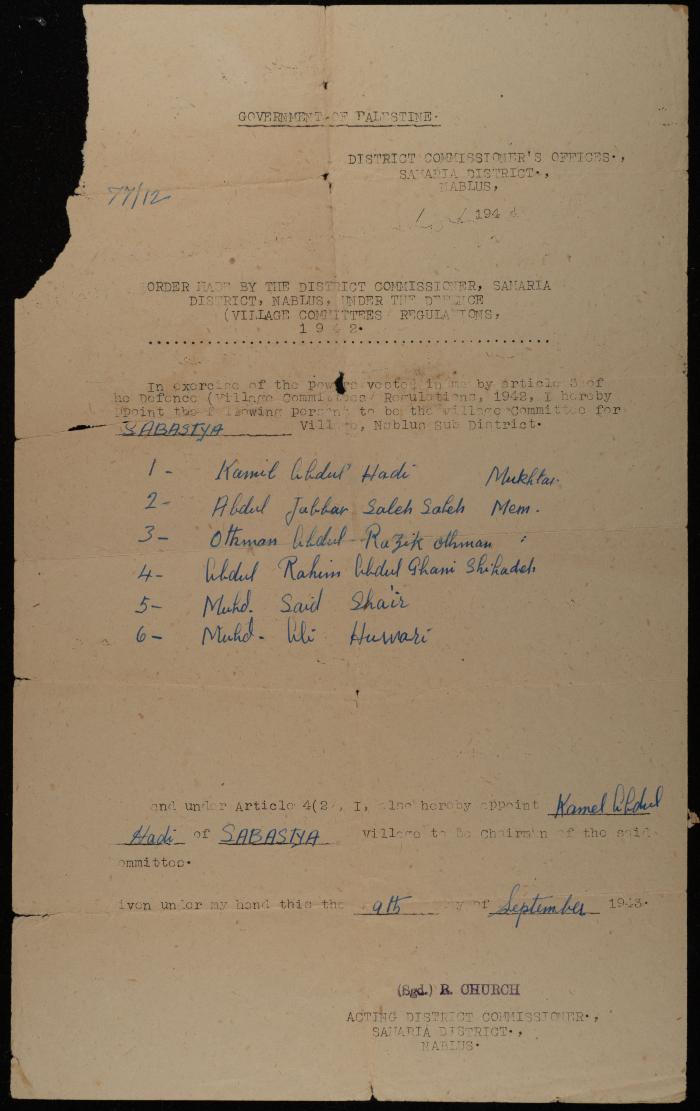 GOVERNMENT OF PALESTINE.
DISTRICT COMMISSIONER'S OFFICES.,
SAMARIA DISTRICT.,
NABLUS,
77/12
194
ORDER MADE BY THE DISTRICT COMMISSIONER, SAMARIA
DISTRICT, NABLUS, UNDER THE DEFENCE
(VILLAGE COMMITTEES) REGULATIONS,
1942.
In exercise of the powers vested in me by article 3 of
he Defence (Village Committees) Regulations, 1942, I hereby
ppoint the following persons to be the village Committee for
SABASTYA Village, Nablus Sub District.
1 - Kamil Abdul Hadi Mukhtar.
2 - Abdul Jabbar Saleh Saleh Mem.
3 - Othman Abdul Razik Othman "
4 - Abdul Rahim Abdul Ghani Shihadeh
5 - Muhd. Said Sha'ir
6 - Muhd. Ali Huwari
and under Article 4(2), I, also hereby appoint Kamel Abdul
Hadi of SABASTYA village to be Chairman of the said
ommittee.
iven under my hand this the 9th day of September 1943.
(Sgd.) R. CHURCH
ACTING DISTRICT COMMISSIONER.,
SAMARIA DISTRICT.,
NABLUS.